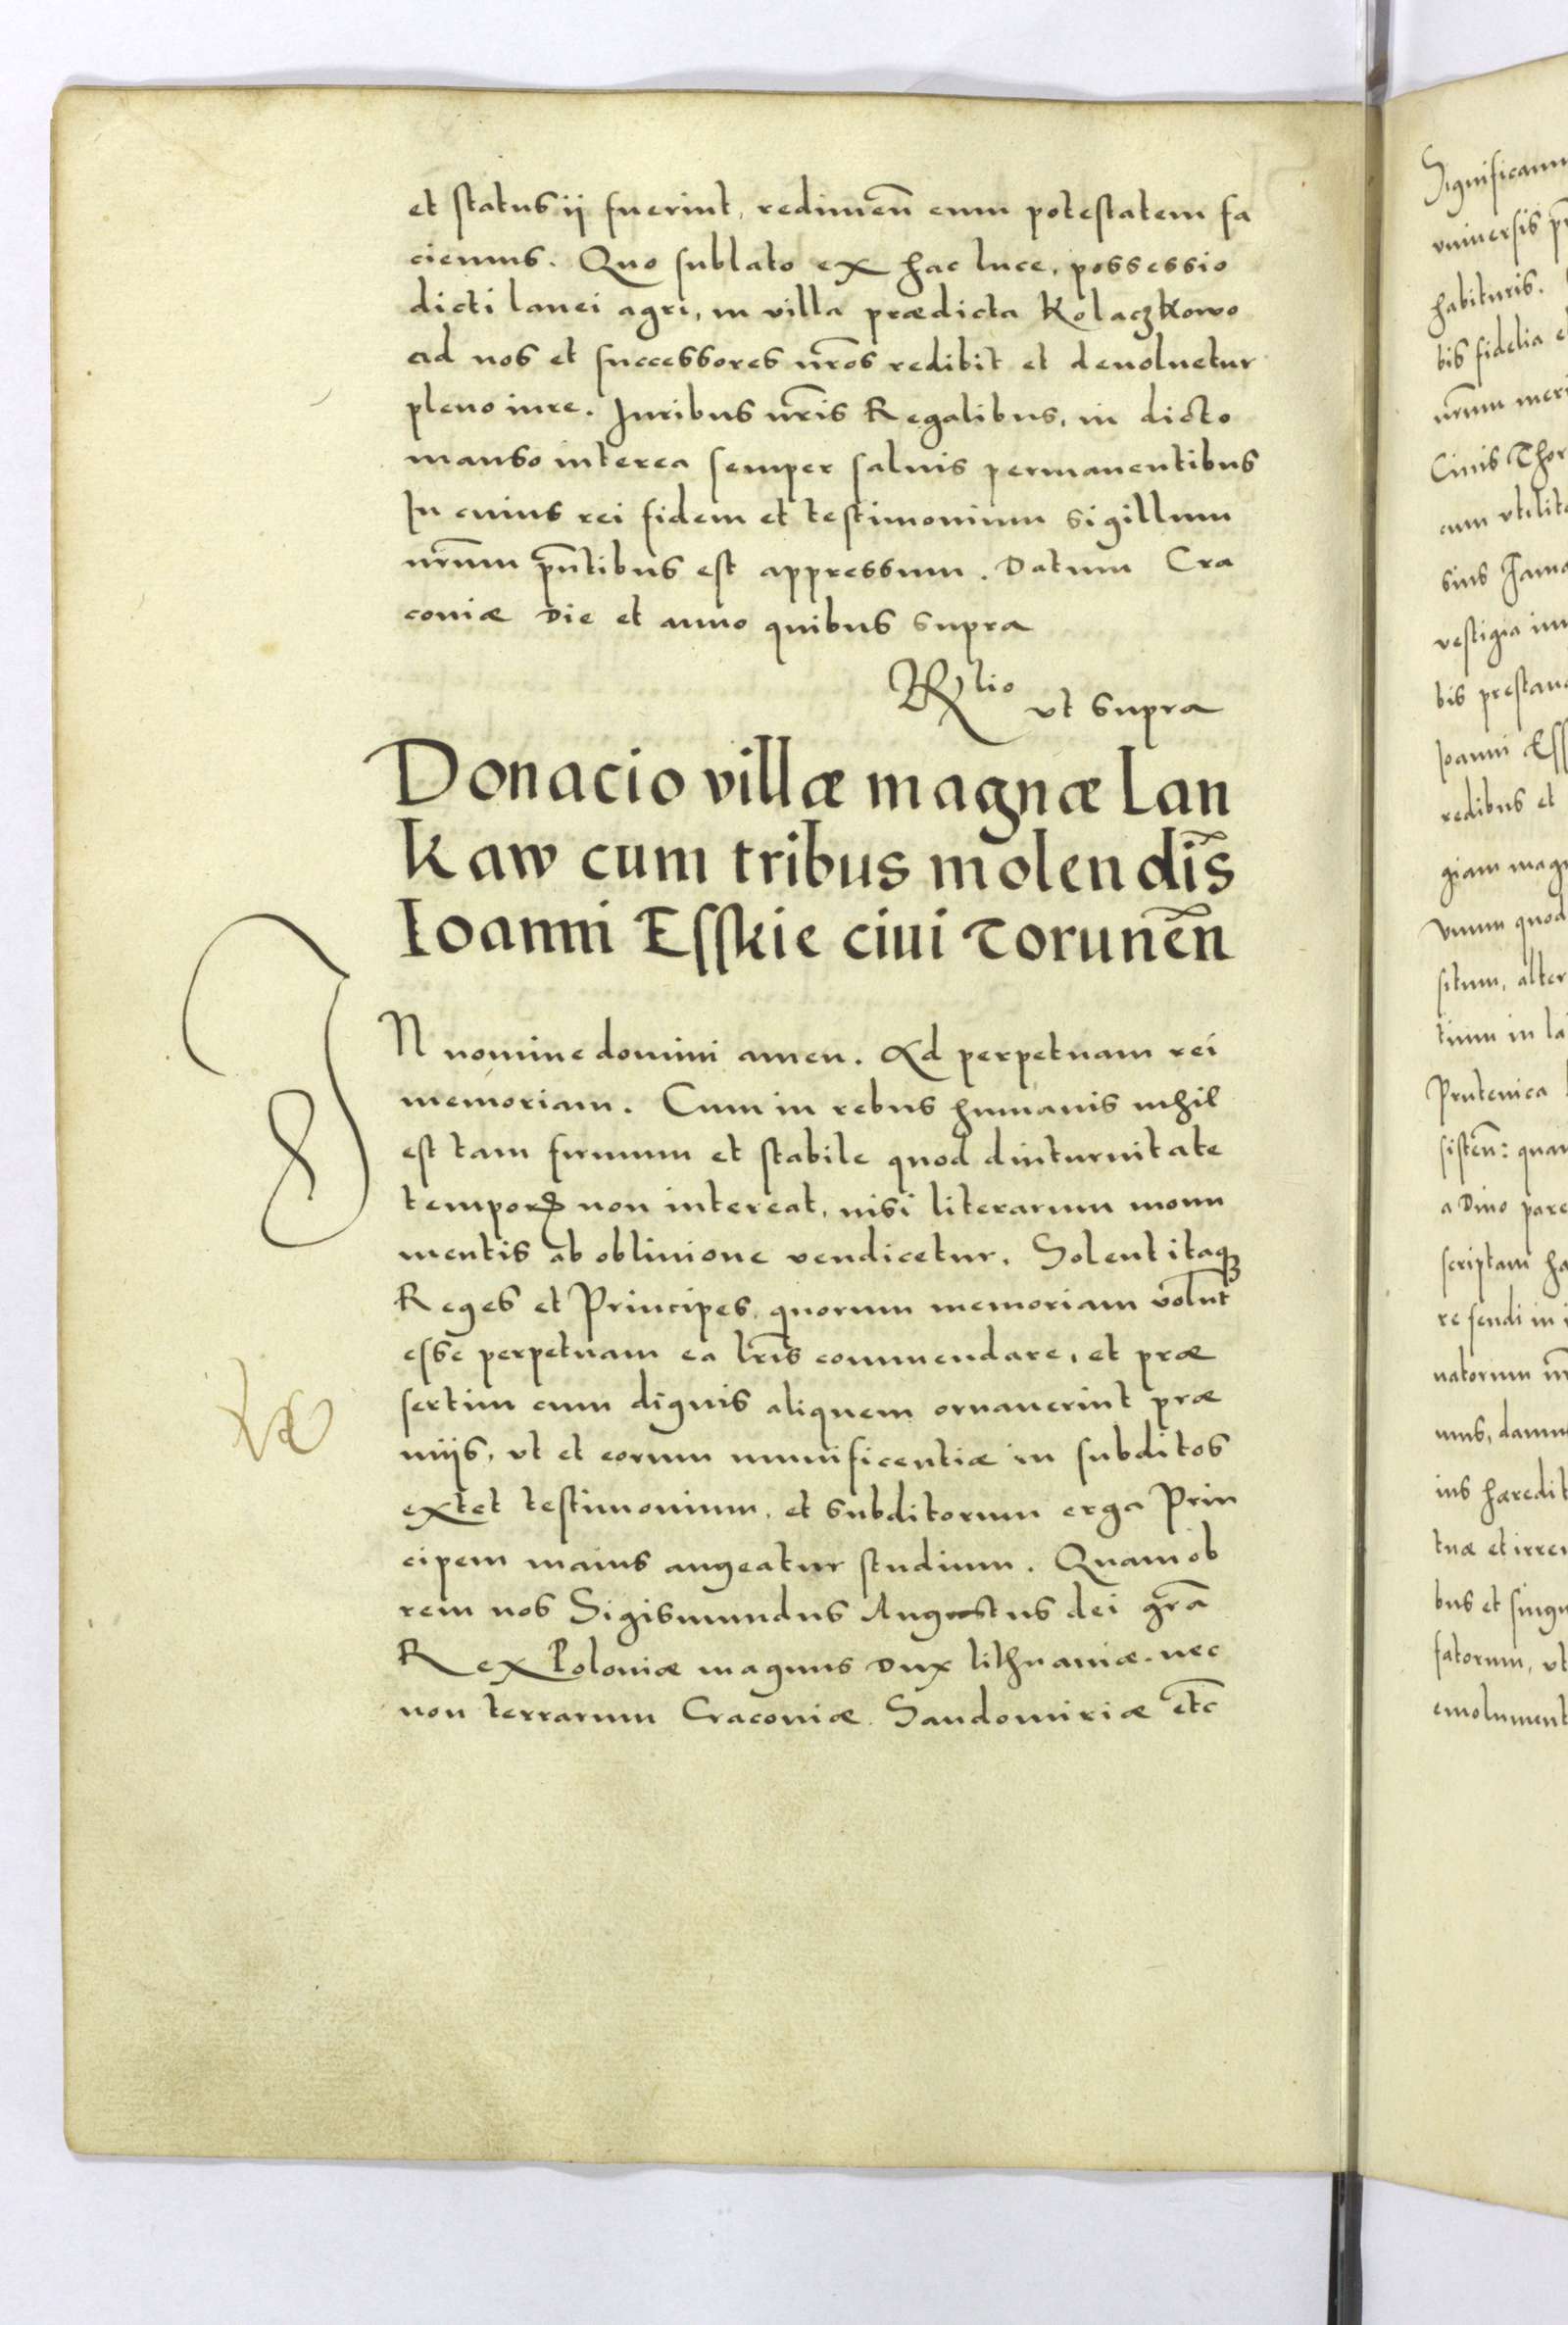 et status ii fuerint, redimen̄ eum potestatem fa
ciemus. Quo sublato ex hac luce, possessio
dicti lanei agri, in villa prædicta Kolaczkowo
ad nos et successores nr̄os redibit et deuoluetur
pleno iure. Iuribus nr̄is Regalibus, in dicto
manso interea semper saluis permanentibus
In cuius rei fidem et testimonium sigillum
nr̄um pn̄tibus est appressum. Datum Cra
couiæ Die et anno quibus supra
Rlio ut supra
Donacio villæ magnæ Lan
kaw cum tribus molendis̄
Ioanni Esskie ciui Torunen̄
IN nomine domini amen. Ad perpetuam rei
memoriam. Cum in rebus humanis nihil
est tam firmum et stabile quod diuturnitate
tempor̄ non intereat, nisi literarum monu
mentis ab obliuione vendicetur. Solent itaqꝫ
Reges et Principes, quorum memoriam volūt
esse perpetuam ea lr̄is commendare, et præ
sertim cum dignis aliquem ornauerint præ
miis, vt et eorum munificentiæ in subditos
extet testimonium, et subditorum erga Prin
cipem maius augeatur studium. Quamob
rem nos Sigismundus Augustus dei gr̄a
Rex Poloniæ magnus Dux lithuaniæ. nec
non terrarum Cracouiæ. Sandomiriæ etc̄
Significamu
vniuersis
habituris.
bis fidelia
nr̄um
Ciuis Thor
cum vtilit
sius
vestigia
bis prestan
Ioanni Ess
redibus et
giam mag
Vnum quod
situm, alter
tium in la
Prutenica
sisten̄: quam
a Diuo pare
scriptam ha
re feudi in
natorum
mus, damu
ius hæredit
tuæ et irre
bus et singu
fatorum, vt
emolument